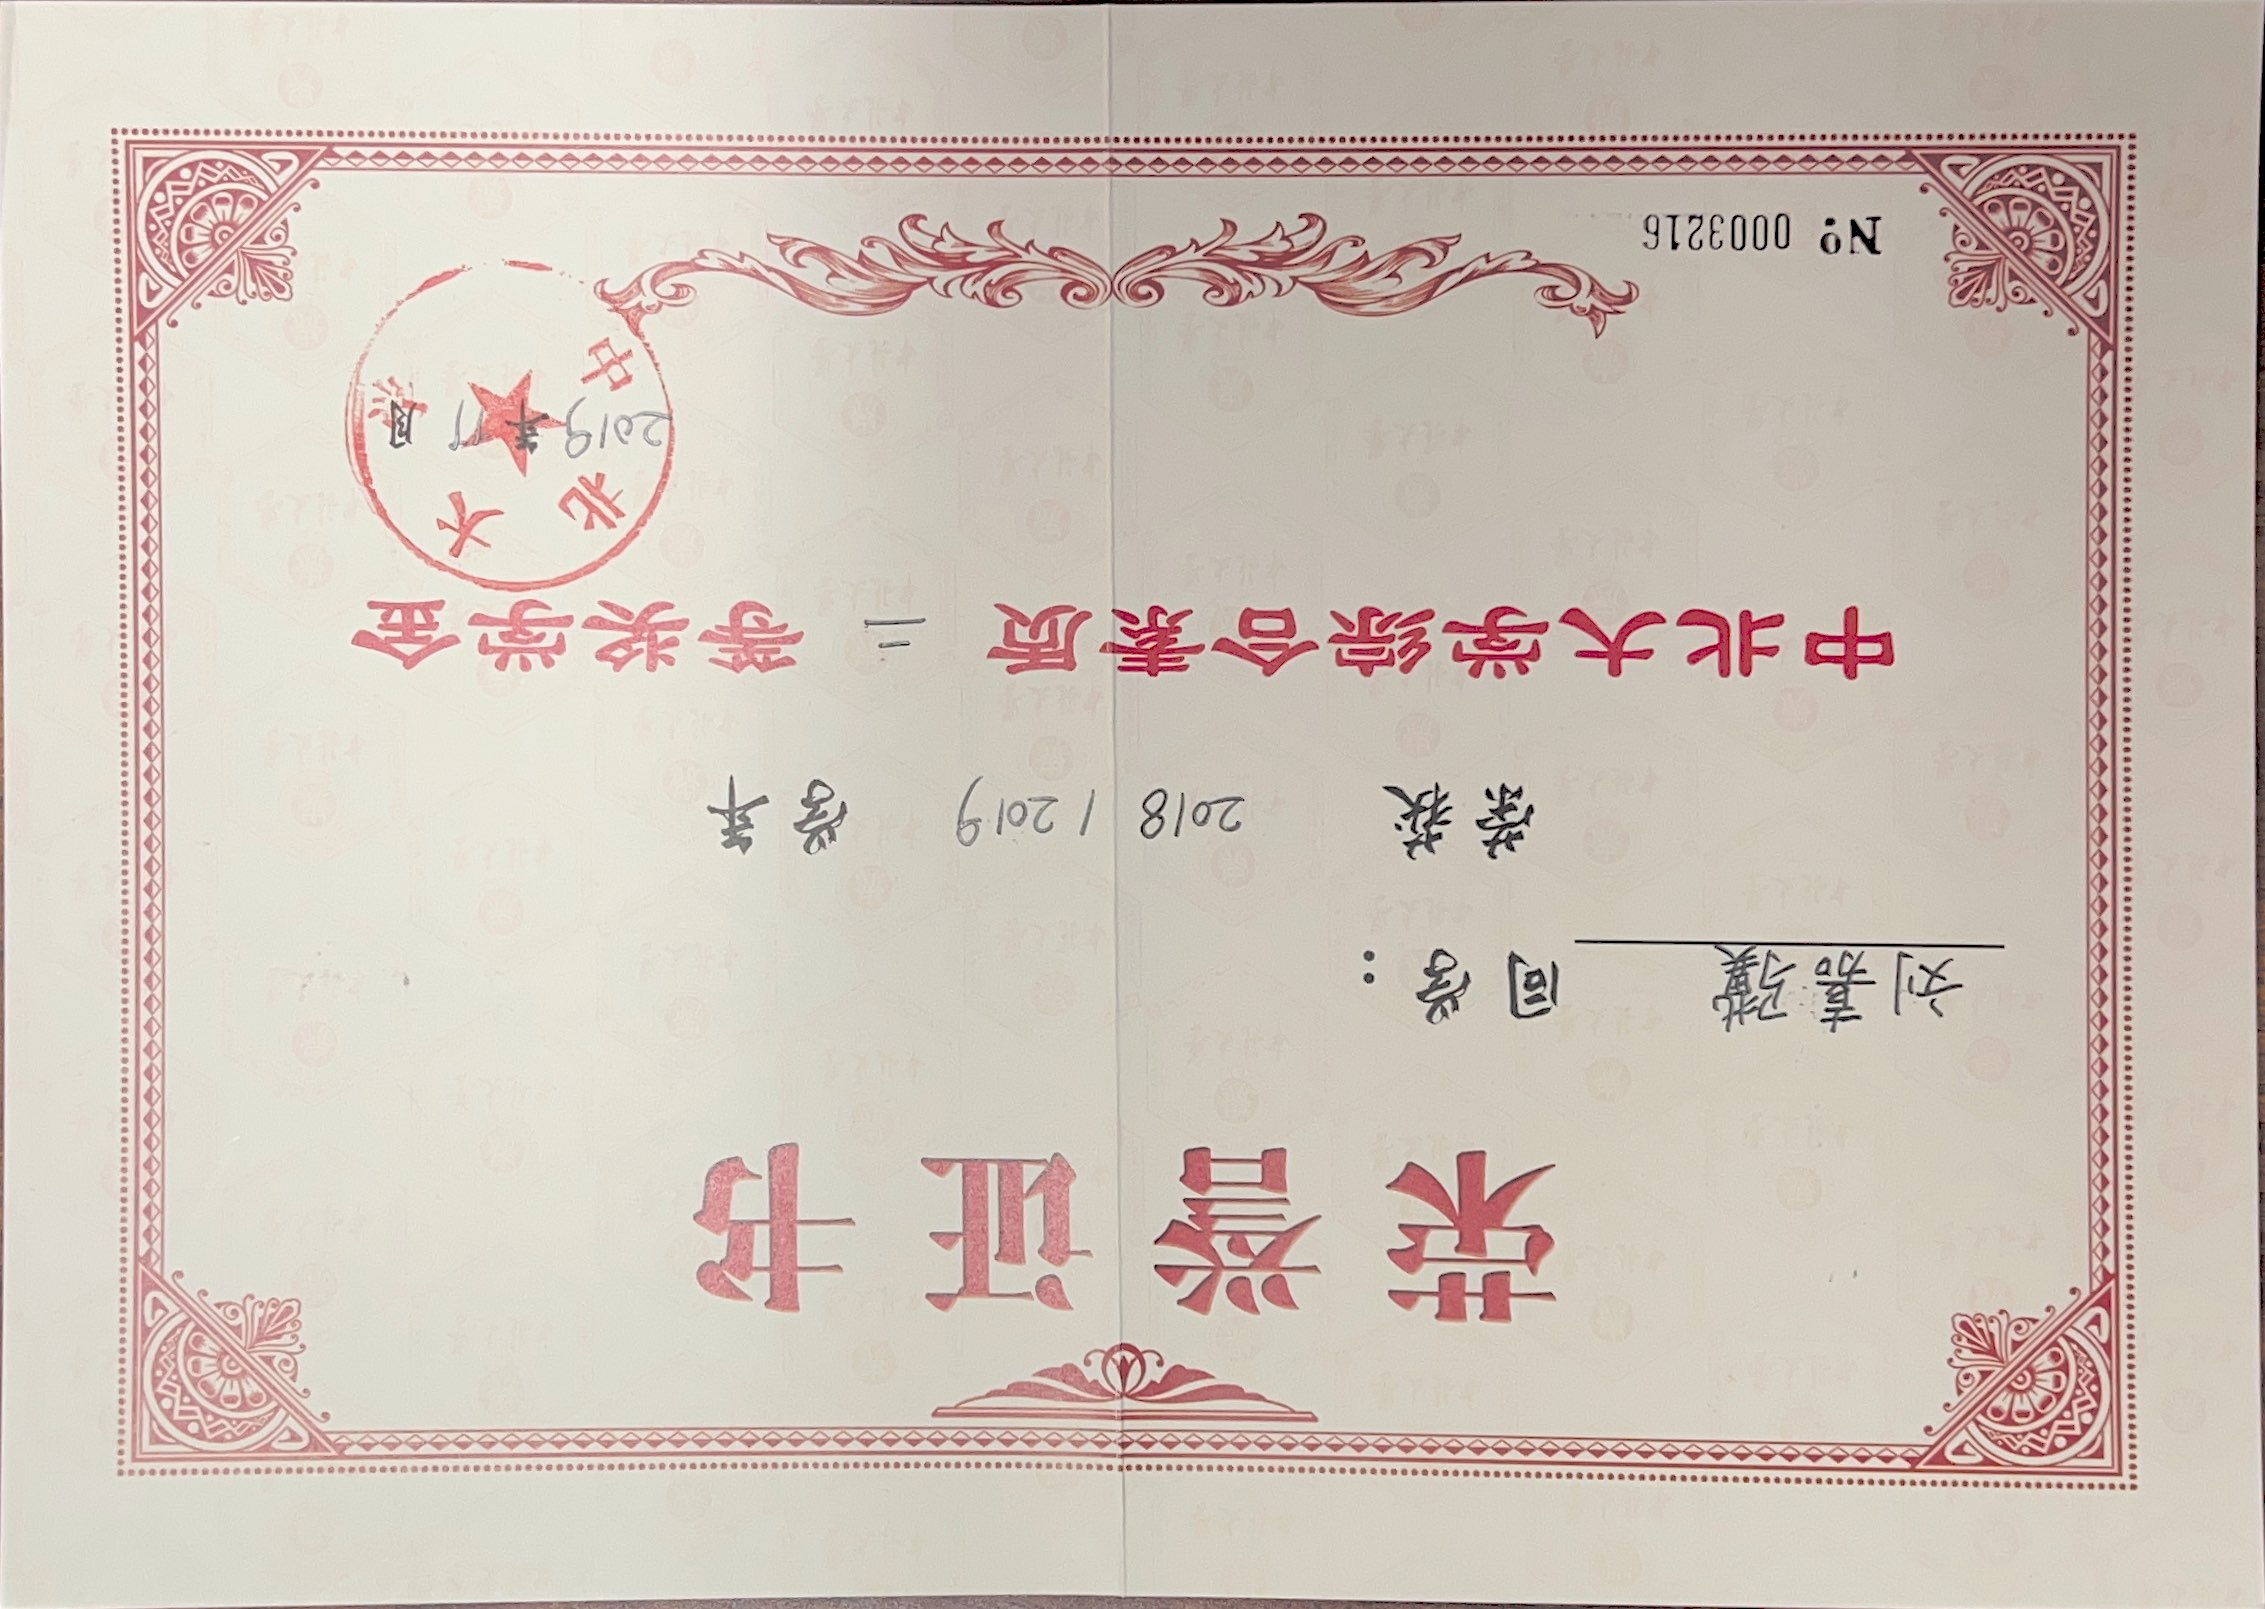 荣誉证书
刘嘉骥 同学：
荣获 2018 / 2019 学年
中北大学综合素质 二 等奖学金
中北大学
2019年11月
№ 0003216